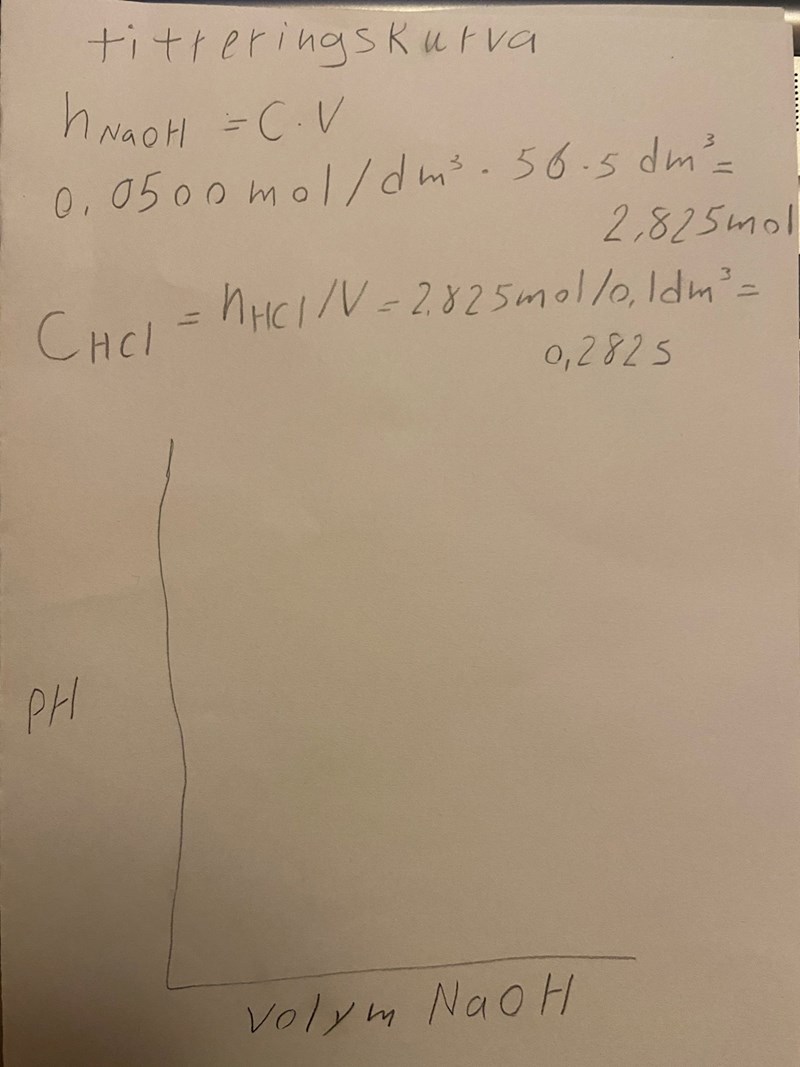 titreringskurva
n NaOH = C · V
0,0500 mol/dm³ · 56.5 dm³ =
2,825mol
CHCl = nHCl/V = 2,825mol/0,1dm³ =
0,2825
PH
Volym NaOH